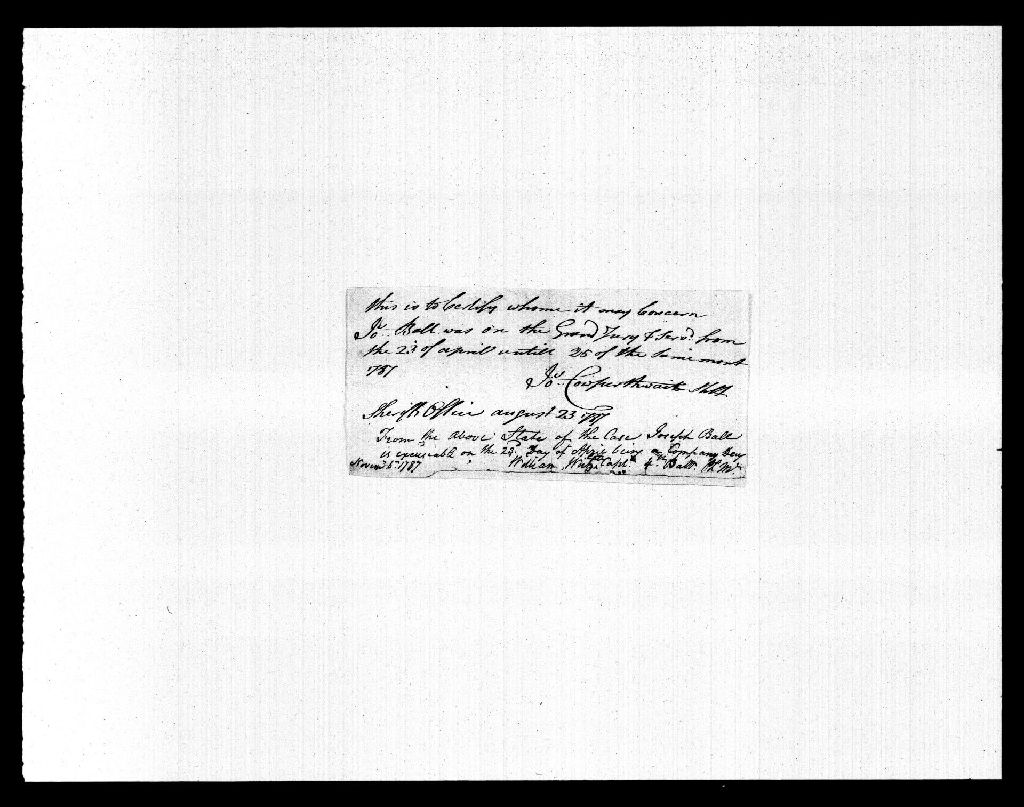 this is to Certify whome it may Concern
Jos. Ball was on the Grand Jury & Serv'd from
the 23d of april untill 25 of the same mont
1787
Jos. Cowperthwait Shff
Sheriffs Office august 23 1787
From the above State of the Case Joseph Ball
is excusable on the 23d Day of being a Company Day
Novem 3d 1787 William Capt. 4th Batt.